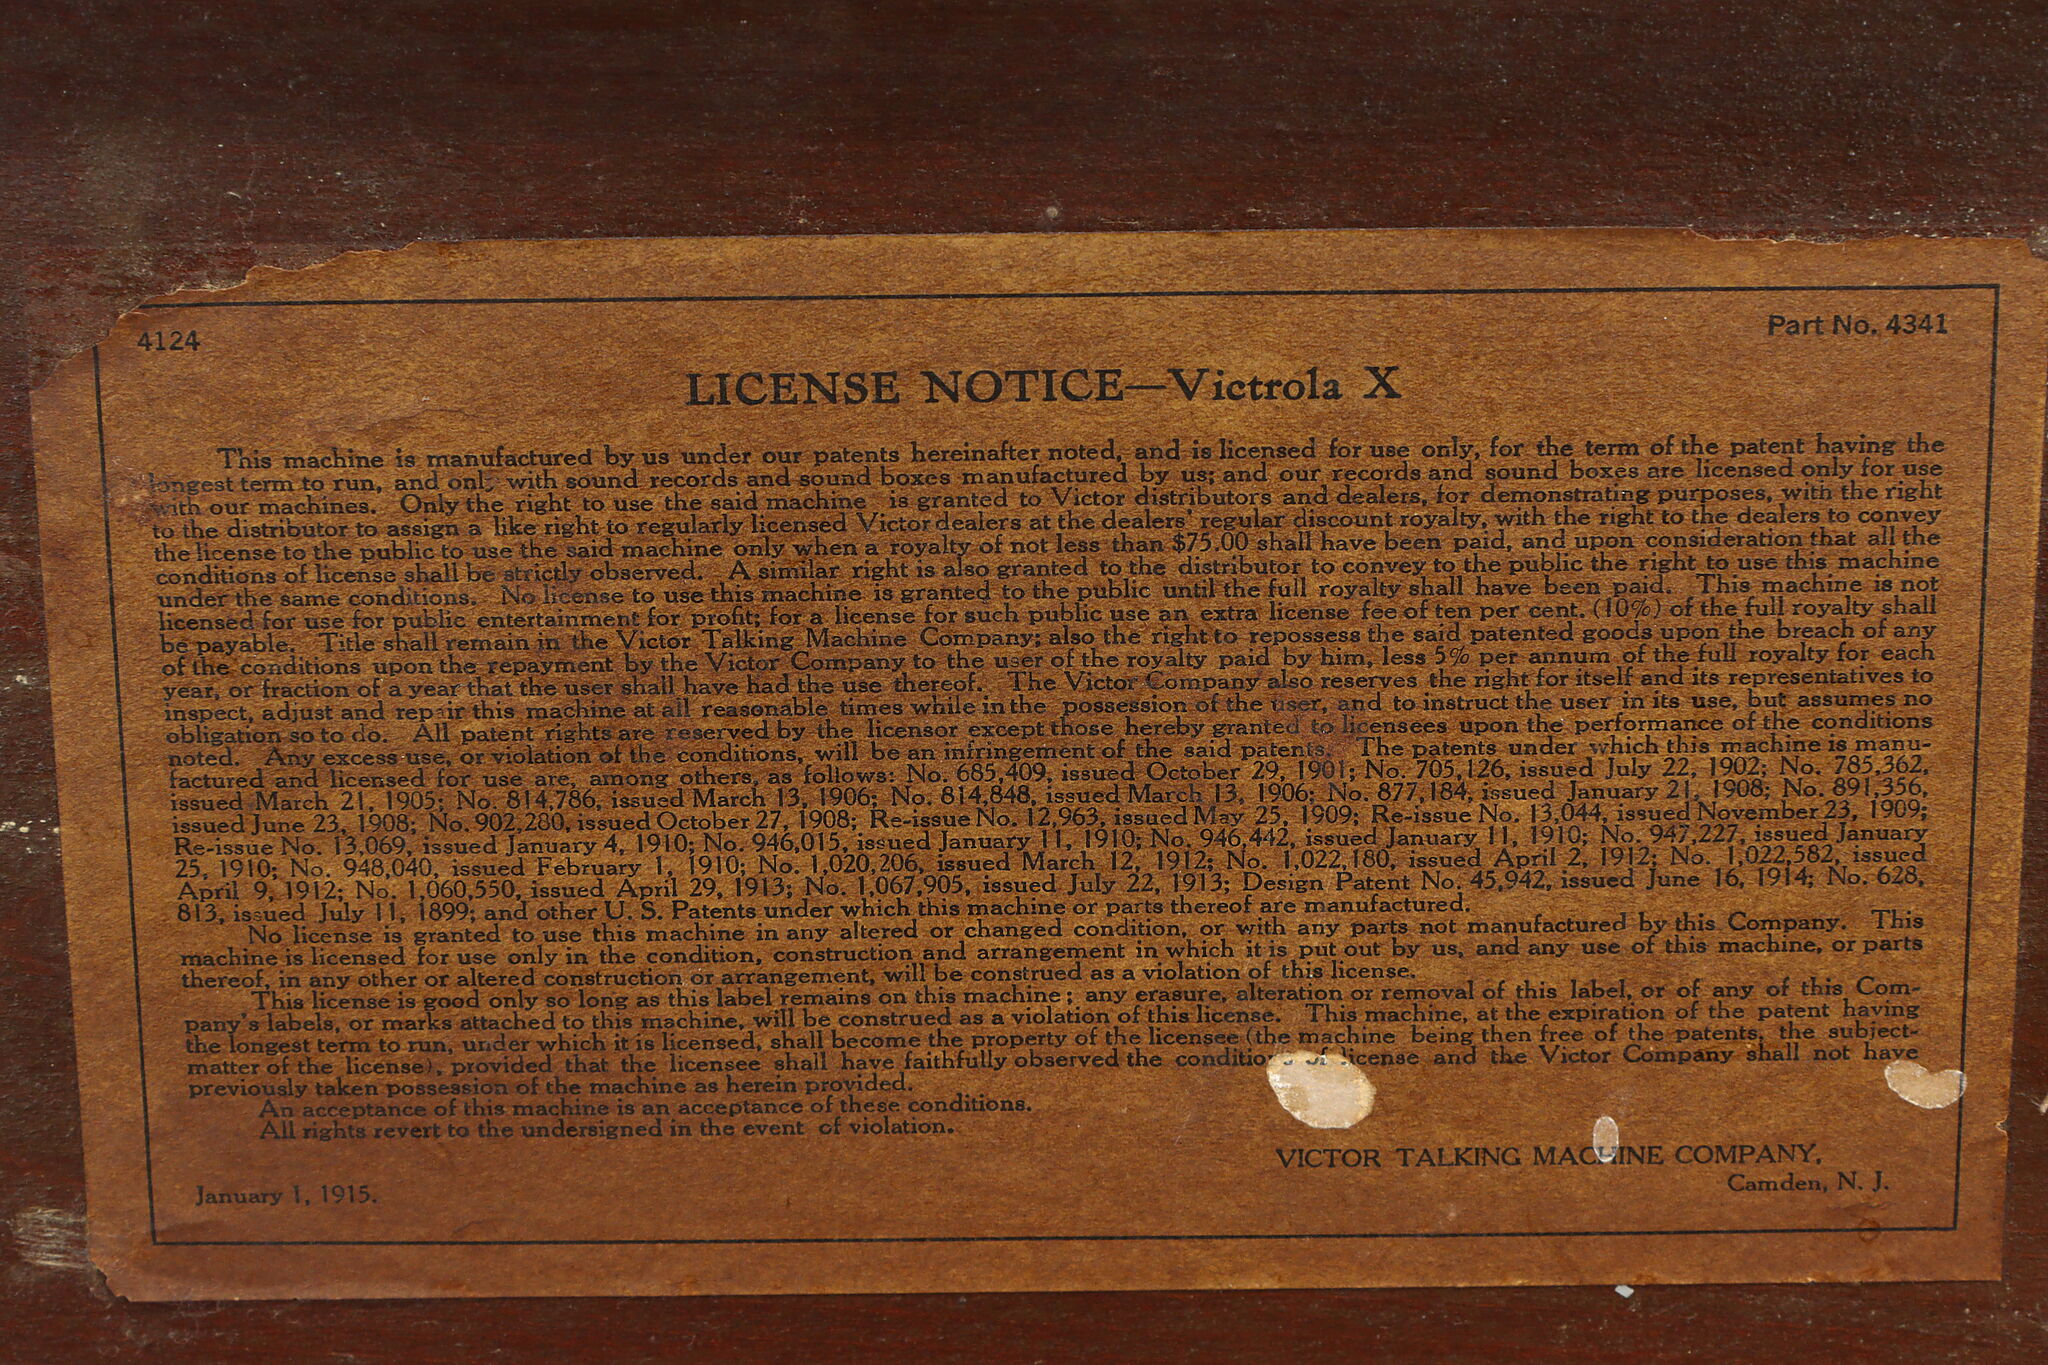 4124
Part No. 4341
LICENSE NOTICE—Victrola X
This machine is manufactured by us under our patents hereinafter noted, and is licensed for use only, for the term of the patent having the
longest term to run, and only with sound records and sound boxes manufactured by us; and our records and sound boxes are licensed only for use
with our machines. Only the right to use the said machine is granted to Victor distributors and dealers, for demonstrating purposes, with the right
to the distributor to assign a like right to regularly licensed Victor dealers at the dealers' regular discount royalty, with the right to the dealers to convey
the license to the public to use the said machine only when a royalty of not less than $75.00 shall have been paid, and upon consideration that all the
conditions of license shall be strictly observed. A similar right is also granted to the distributor to convey to the public the right to use this machine
under the same conditions. No license to use this machine is granted to the public until the full royalty shall have been paid. This machine is not
licensed for use for public entertainment for profit; for a license for such public use an extra license fee of ten per cent. (10%) of the full royalty shall
be payable. Title shall remain in the Victor Talking Machine Company; also the right to repossess the said patented goods upon the breach of any
of the conditions upon the repayment by the Victor Company to the user of the royalty paid by him, less 5% per annum of the full royalty for each
year, or fraction of a year that the user shall have had the use thereof. The Victor Company also reserves the right for itself and its representatives to
inspect, adjust and repair this machine at all reasonable times while in the possession of the user, and to instruct the user in its use, but assumes no
obligation so to do. All patent rights are reserved by the licensor except those hereby granted to licensees upon the performance of the conditions
noted. Any excess use, or violation of the conditions, will be an infringement of the said patents. The patents under which this machine is manu-
factured and licensed for use are, among others, as follows: No. 685,409, issued October 29, 1901; No. 705,126, issued July 22, 1902; No. 785,362,
issued March 21, 1905; No. 814,786, issued March 13, 1906; No. 814,848, issued March 13, 1906; No. 877,184, issued January 21, 1908; No. 891,356,
issued June 23, 1908; No. 902,280, issued October 27, 1908; Re-issue No. 12,963, issued May 25, 1909; Re-issue No. 13,044, issued November 23, 1909;
Re-issue No. 13,069, issued January 4, 1910; No. 946,015, issued January 11, 1910; No. 946,442, issued January 11, 1910; No. 947,227, issued January
25, 1910; No. 948,040, issued February 1, 1910; No. 1,020,206, issued March 12, 1912; No. 1,022,180, issued April 2, 1912; No. 1,022,582, issued
April 9, 1912; No. 1,060,550, issued April 29, 1913; No. 1,067,905, issued July 22, 1913; Design Patent No. 45,942, issued June 16, 1914; No. 628,
813, issued July 11, 1899; and other U. S. Patents under which this machine or parts thereof are manufactured.
No license is granted to use this machine in any altered or changed condition, or with any parts not manufactured by this Company. This
machine is licensed for use only in the condition, construction and arrangement in which it is put out by us, and any use of this machine, or parts
thereof, in any other or altered construction or arrangement, will be construed as a violation of this license.
This license is good only so long as this label remains on this machine; any erasure, alteration or removal of this label, or of any of this Com-
pany's labels, or marks attached to this machine, will be construed as a violation of this license. This machine, at the expiration of the patent having
the longest term to run, under which it is licensed, shall become the property of the licensee (the machine being then free of the patents, the subject-
matter of the license), provided that the licensee shall have faithfully observed the conditions of license and the Victor Company shall not have
previously taken possession of the machine as herein provided.
An acceptance of this machine is an acceptance of these conditions.
All rights revert to the undersigned in the event of violation.
VICTOR TALKING MACHINE COMPANY,
Camden, N. J.
January 1, 1915.